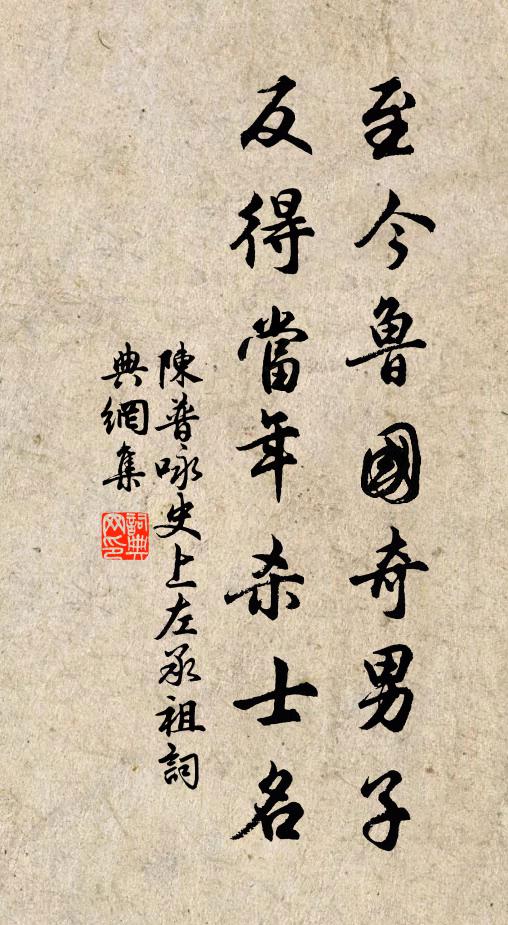 至今魯國奇男子
反得當年杀士名
陳普咏史上左承祖詞
典網集
詞典網印